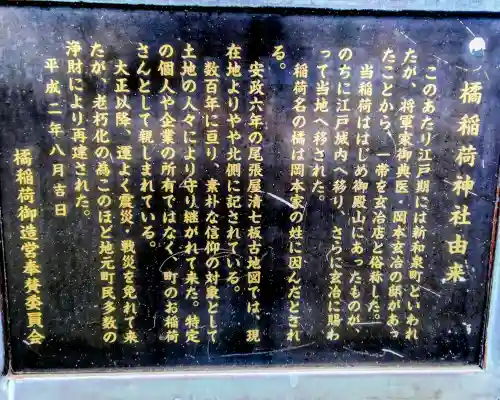 橘稲荷神社由来
このあたり江戸期には新和泉町といわれ
たが、将軍家御典医・岡本玄冶の邸があっ
たことから、一帯を玄冶店と俗称した。
当稲荷ははじめ御殿山にあったものが、
のちに江戸城内へ移り、さらに玄冶に賜わ
って当地へ移された。
稲荷名の橘は岡本家の姓に因んだとされ
る。
安政六年の尾張屋清七板古地図では、現
在地よりやや北側に記されている。
数百年に亘り、素朴な信仰の対象として
土地の人々により守り継がれて来た。特定
の個人や企業の所有ではなく、町のお稲荷
さんとして親しまれている。
大正以降、運よく震災・戦災を免れて来
たが、老朽化の為このほど地元町民多数の
浄財により再建された。
平成二年八月吉日
橘稲荷御造営奉賛委員会